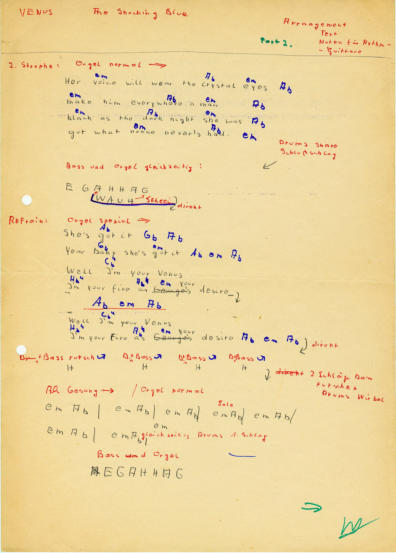 VENUS The Shocking Blue
Arrangement
Text
Part 2. Noten für Rythm-
- Guitarre
2. Strophe: Orgel normal →
em Ab em Ab
Her voice will wear the crystal eyes
em Ab em Ab
make him everywhere a man
em Ab em Ab
blank as the dark night she was
got what noone neverts had. em
Drums snare
Schlußschlag
Bass und Orgel gleichzeitig:
E G A H H A G
(WAUH → Schrei)
direkt
Refrain: Orgel spezial →
Ab
She's got it Gb Ab
Gb em
Your Baby she's got it Ab em Ab
Cb4
Well I'm your Venus
Hb4 Ab4 em your
I'm your fire as desire
Ab em Ab
Cb4
Well I'm your Venus
Hb4 Ab4 em your
I'm your fire as desire Ab em Ab direkt
Bass rutsch Bass Bass Bass
H H H H
direkt 2 Schläge Dum
rutschet
Drums Wirbel
Ah Gesang → / Orgel normal
Solo
em Ab | em Ab / em Ab / em Ab / em Ab /
em
em Ab | em Ab gleichzeitig Drums 1 Schlag
Bass und Orgel
H E G A H H A G